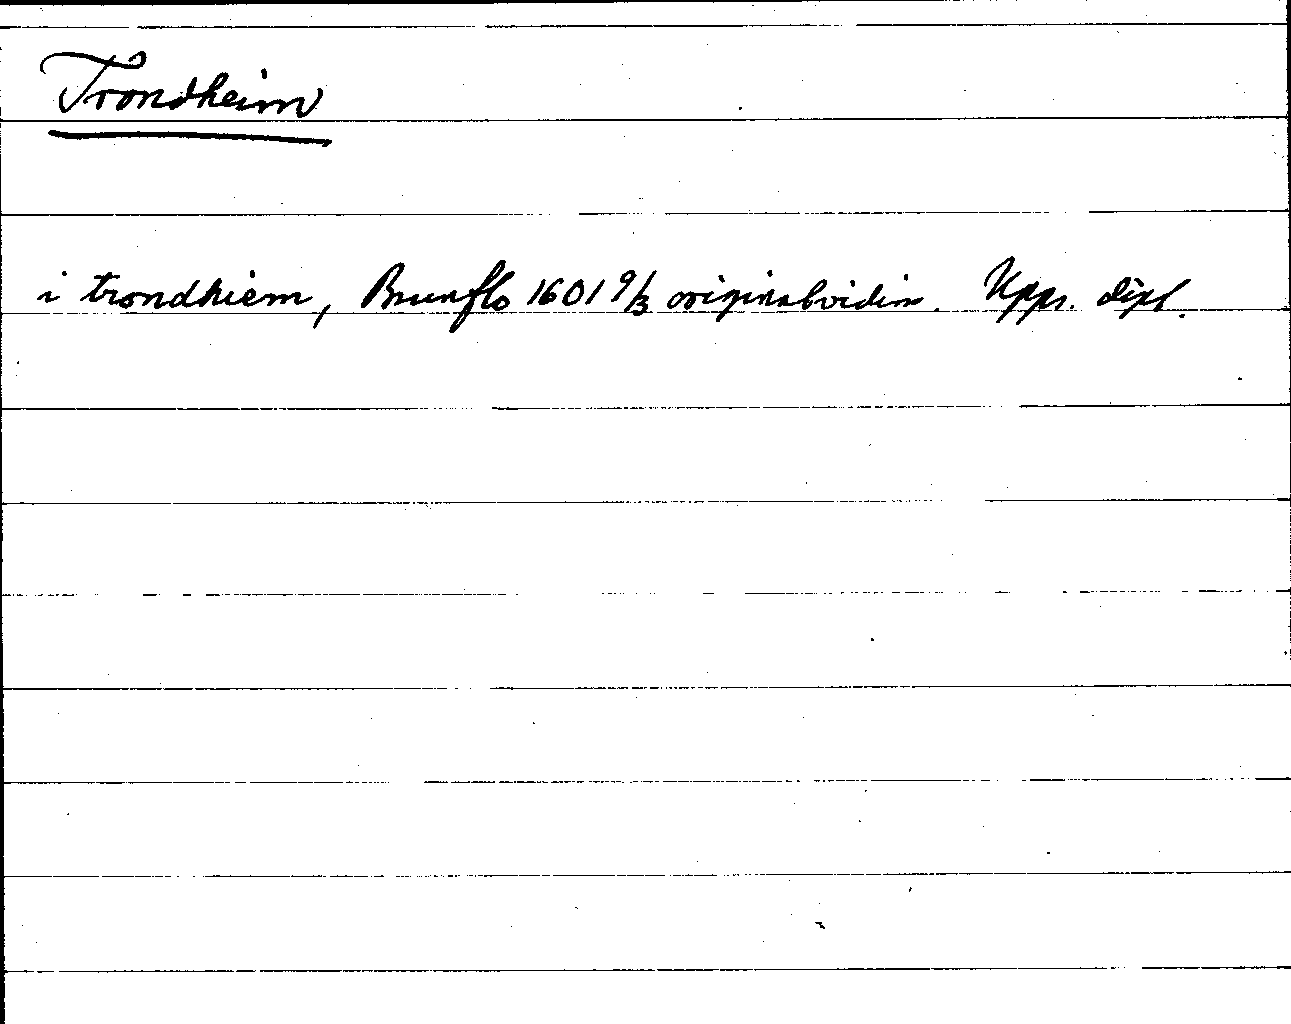 Trondheim
i trondhiem, Brunflo 1601 9/3 originalvidim. Upps. dipl.